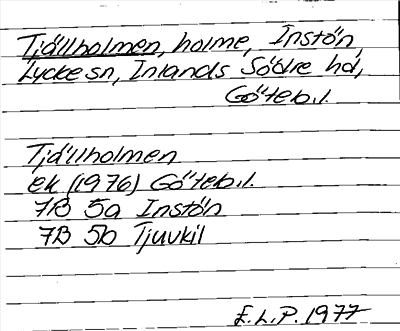 Tjällholmen, holme, Instön,
Lycke sn, Inlands Södre hd,
Göteb.l.
Tjällholmen
ek (1976) Göteb.l.
7B 5a Instön
7B 5b Tjuvkil
E.L.P. 1977